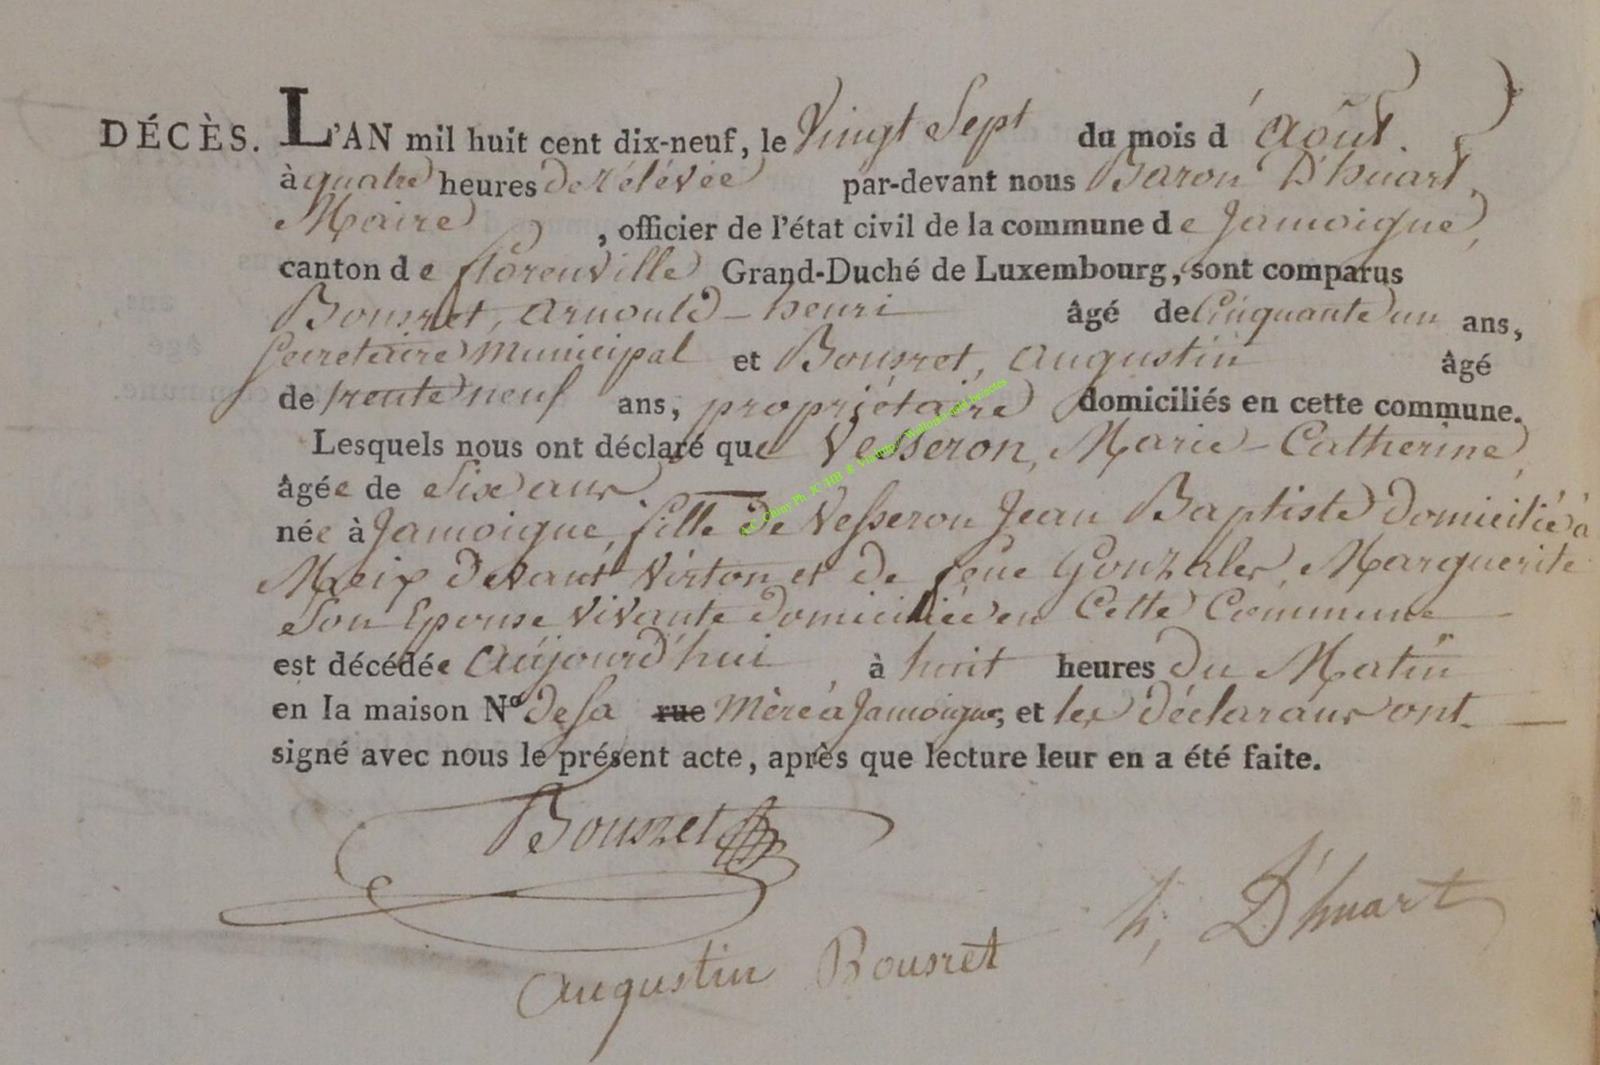 DÉCÈS. L'AN mil huit cent dix-neuf, le Vingt Sept du mois d'Août.
à quatre heures de rélévée par-devant nous Baron D'huart,
Maire, officier de l'état civil de la commune de Jamoigne,
canton de florenville Grand-Duché de Luxembourg, sont comparus
Bousret, Arnould-henri âgé de Cinquante un ans,
Secretaire Municipal et Bousret, Augustin âgé
de trente neuf ans, propriétaire domiciliés en cette commune.
Lesquels nous ont déclaré que Vesseron, Marie-Catherine,
âgée de Six ans
née à Jamoigne, fille de Vesseron Jean Baptiste domicilié à
Meix devant Virton et de feue Gonzales, Marguerite
Son Epouse Vivante domiciliée en Cette Commune
est décédée Aujourd'hui, à huit heures du Matin
en la maison Nº de sa rue Mère à Jamoigne, et les déclarans ont
signé avec nous le présent acte, après que lecture leur en a été faite.
Bousret
h, D'huart
Augustin Bousret